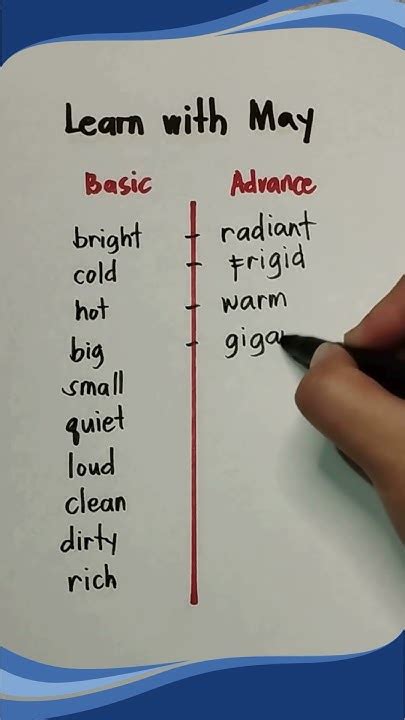 Learn with May
Basic Advance
bright - radiant
cold - Frigid
hot - warm
big - giga
small
quiet
loud
clean
dirty
rich